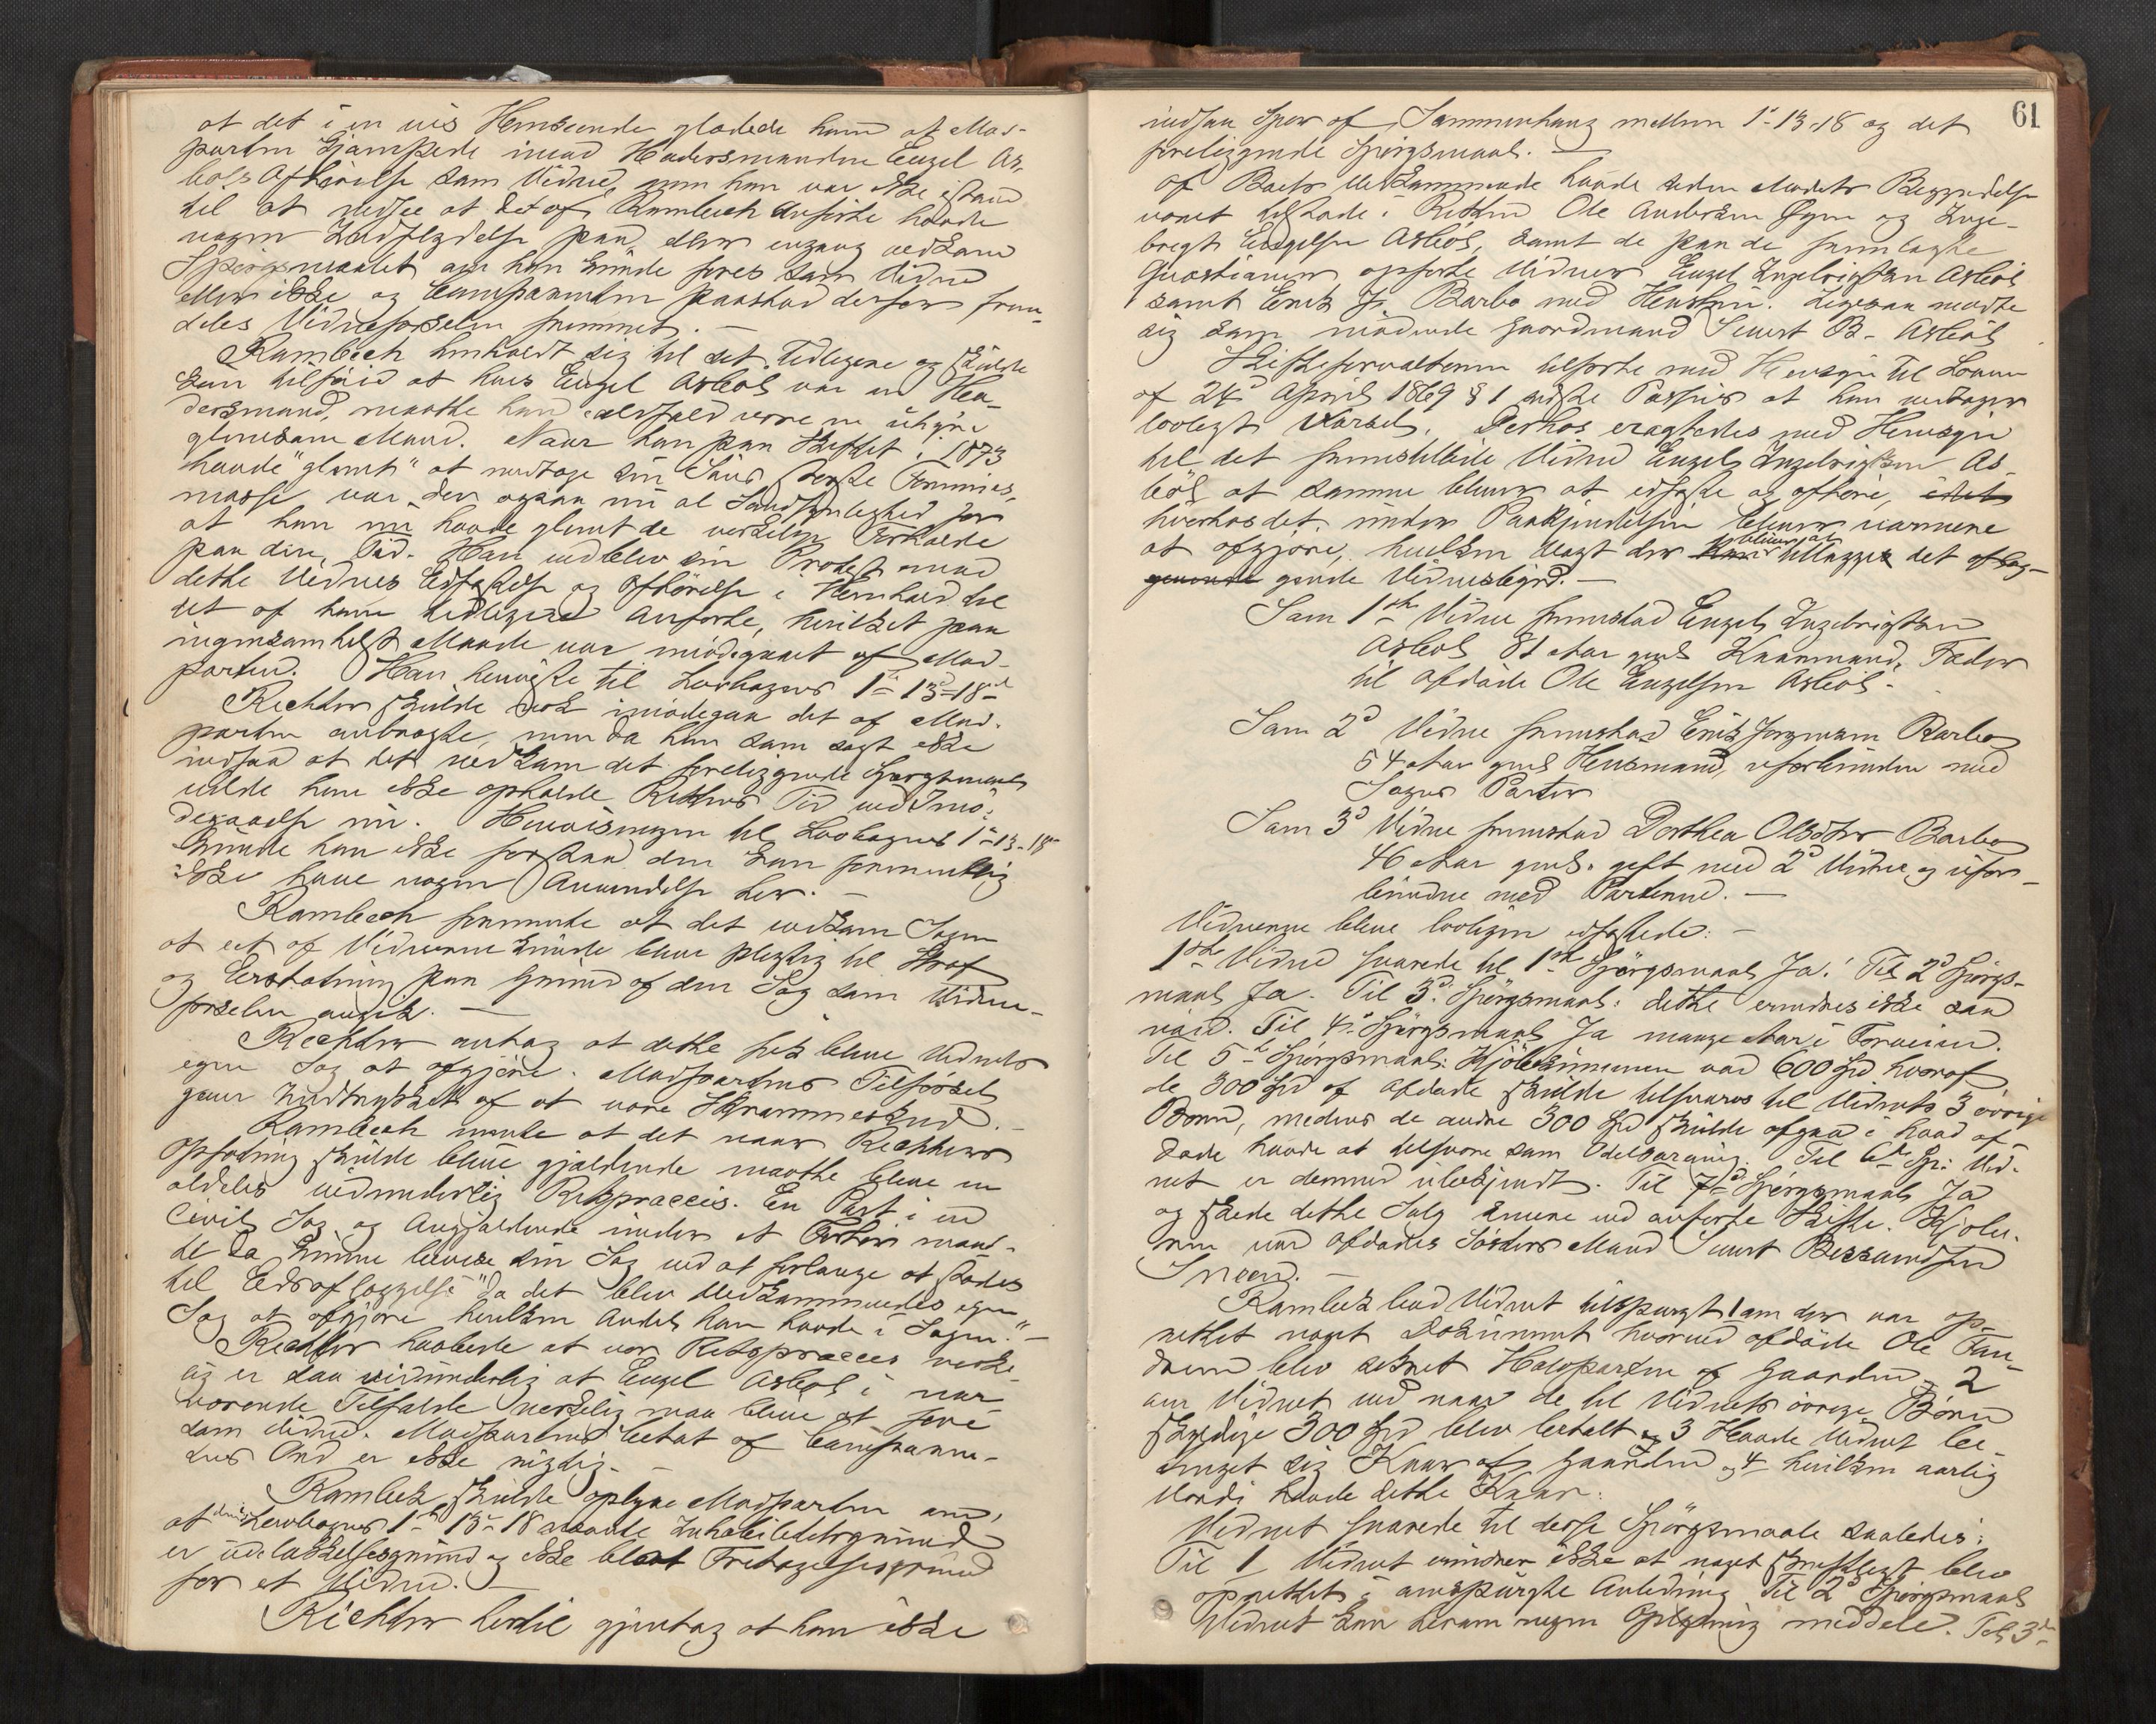 at det i en vis Henseende glædede ham at Mod-
parten kjæmpede imod Hædersmanden Engel As-
bøls Afhørelse som Vidne, men han var ikke istand
til at indsee at det af Rambech anførte havde
nogen Indflydelse paa, eller engang vedkom
Spørgsmaalet om han kunde føres som Vidne
eller ikke og Comparenten paastod derfor frem-
deles Vidneførselen fremmet. —
Rambech henholdt sig til det tidligere og skulde
kun tilføie at hvis Engel Asbøl var en Hæ-
dersmand, maatte han ialdfald være en uhyre
glemsom Mand. Naar han paa Skiftet i 1873
havde "glemt" at medtage sin Søns første
masse var der ogsaa nu al Sandsynlighed for
at han nu havde glemt de virkelige Forholde
paa den Tid. Han vedblev sin Protest mod
dette Vidnes Edfæstelse og Afhørelse i Henhold til
det af ham tidligere Anførte, hvilket paa
ingensomhelst Maade var imødegaaet af Mod-
parten. Han henviste til Lovbogens 1-13-18
Richter skulde nok imødegaa det af Mod-
parten anbragte, men da han som sagt ikke
indsaa at det vedkom det foreliggende Spørgsmaal
vilde han ikke opholde Rettens Tid ved Imø-
degaaelse nu. Henvisningen til Lovbogens 1-13-18
kunde han ikke forstaa den kan formentlig
ikke have nogen Anvendelse her. —
Rambech formente at det vedkom Sagen
at eet af Vidnerne kunde blive pligtig til Straf
og Erstatning paa Grund af den Sag som Vidne-
førselen angik. —
Richter antog at dette fik blive Vidnets
egen Sag at afgjøre. Modpartens Tilførsel
gav Indtrykket af at være Skræmmeskud. —
Rambech mente at det naar Richters
Opfatning skulde blive gjældende maatte blive en
aldeles vidunderlig Retspraxis. En Part i en
Civil Sag og Angjældende under et Forhør maat-
te da kunne bevise sin Sag ved at forlange at stedes
til Eds aflæggelse "da det blev Vedkommendes egen
Sag at afgjøre hvilken Andel han havde i Sagen." —
Richter haabede at vor Retspraxis virke-
lig er saa vidunderlig at Engel Asbøl i nær-
værende Tilfælde virkelig maa blive at føre
som Vidne. Modpartens Citat af Comparen-
tens Ord er ikke rigtig. —
Rambech skulde oplyse Modparten om,
at den i Lovbogens 1-13-18 nævnte Inhabilitetsgrund
er udelukkelsesgrund og ikke blot Fritagelsesgrund
for et Vidne. —
Richter hertil gjentog at han ikke
61
indsaa Spor af Sammenhæng mellem 1-13-18 og det
foreliggende Spørgsmaal. —
Af Boets Vedkommende havde siden Mødets Begyndelse
været tilstede i Retten Ole Andersen Øgne og Inge-
bregt Engelsen Asbøl, samt de paa de fremlagte
Quæstioner opførte Vidner Engel Ingebrigtsen Asbøl
samt Erick J. Barbo med Hustru. Ligesaa mødte
sig som mødende Gaardmand Siurt B. Asbøl
Skifteforvalteren tilførte med Hensyn til Loven
af 24de April 1869 § 1 sidste Passus at han vedtager
lovligt Varsel. Derhos eragtedes med Hensyn
til det fremstillede Vidne Engel Ingebrigtsen As-
bøl at samme bliver at edfæste og afhøre,
hvorhos det under Paakjendelsen bliver nærmere
at afgjøre, hvilken Vægt der bliver at tillægge det aflæg-
gende Vidnesbyrd. —
Som 1ste Vidne fremstod Engel Ingebrigtsen
Asbøl 81 Aar gml Kaarmand, Fader
til afdøde Ole Engelsen Asbøl.
Som 2d Vidne fremstod Erick Jørgensen Barbo
54 Aar gml Husmand, uforbunden med
Sagens Parter
Som 3d Vidne fremstod Dorthea Olsdtr Barbo
46 Aar gml. gift med 2d Vidne og ufor-
bunden med Parterne. —
Vidnerne bleve lovligen edfæstede: —
1ste Vidne svarede til 1ste Spørgsmaal Ja. Til 2d Spørgs-
maal Ja. Til 3d Spørgsmaal: dette erindres ikke saa
nøie. Til 4d Spørgsmaal Ja mange Aar i Forveien.
Til 5te Spørgsmaal: Kjøbesummen var 600 Spd hvoraf
de 300 Spd af afdøde skulde tilsvares til Vidnets 3 øvrige
Børn, medens de andre 300 Spd skulde afgaa i hvad af-
døde havde at tilsvare som Odelsarving. Til 6te Sp: Vid-
net er dermed ubekjendt. Til 7de Spørgsmaal Ja
og skede dette Salg senere end anførte Skifte. Kjøbe-
ren var Afdødes Søsters Mand Siurt Bessesen
Sneen. —
Rambech lod Vidnet tilspørge 1 om der var op-
rettet noget Dokument hvorved afdøde Ole For-
drem blev sikret Halvparten af Gaarden, 2
om Vidnet ved naar de til Vidnets øvrige Børn
skyldige 300 Spd blev betalt og 3 Havde Vidnet be-
tinget sig Kaar af Gaarden og 4 hvilken aarlig
Værdi havde dette Kaar:
Vidnet svarede til disse Spørgsmaale saaledes:
Til 1 Vidnet erindrer ikke at noget skriftligt blev
oprettet i omspurgte Anledning Til 2d Spørgsmaal
Vidnet kan herom ingen Oplysning meddele. Til 3die